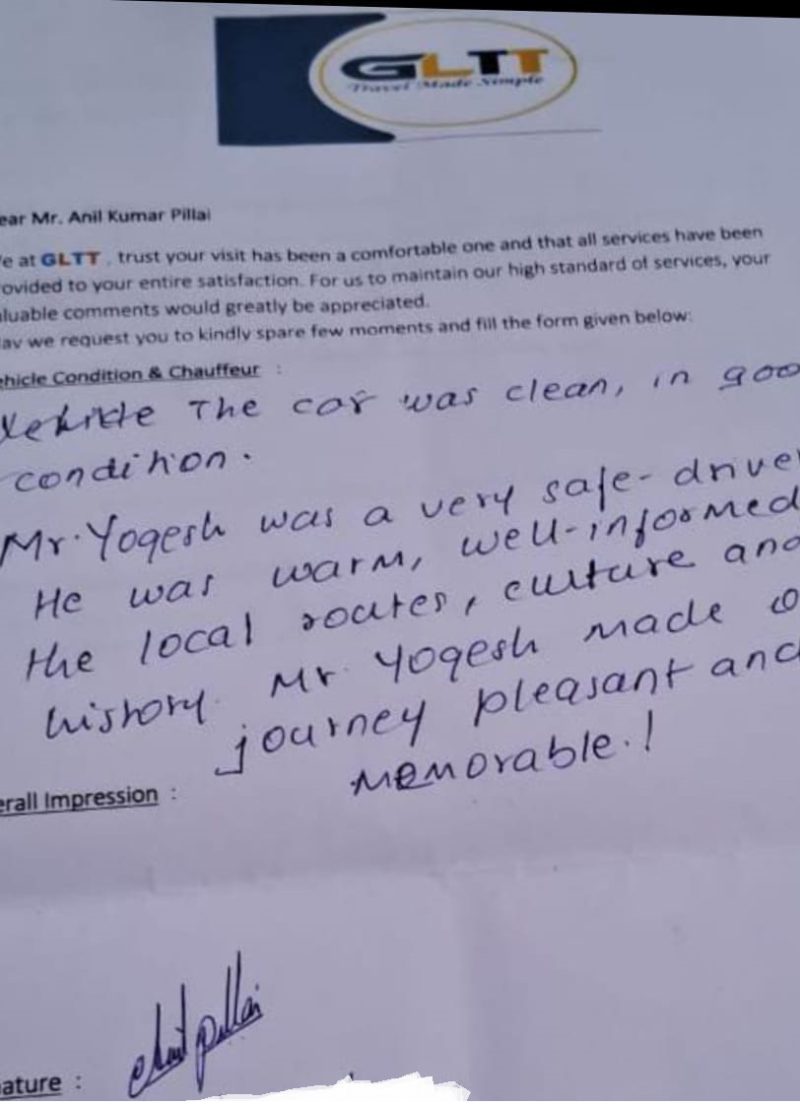 GLTT
Travel Made Simple
ear Mr. Anil Kumar Pillai
e at GLTT , trust your visit has been a comfortable one and that all services have been
ovided to your entire satisfaction. For us to maintain our high standard of services, your
luable comments would greatly be appreciated.
ay we request you to kindly spare few moments and fill the form given below:
ehicle Condition & Chauffeur :
The car was clean, in goo
condition.
Mr. Yogesh was a very safe-drive
He was warm, well-informed
the local routes, culture and
history. Mr. Yogesh made o
journey pleasant and
memorable.!
erall Impression :
pillai
ature :